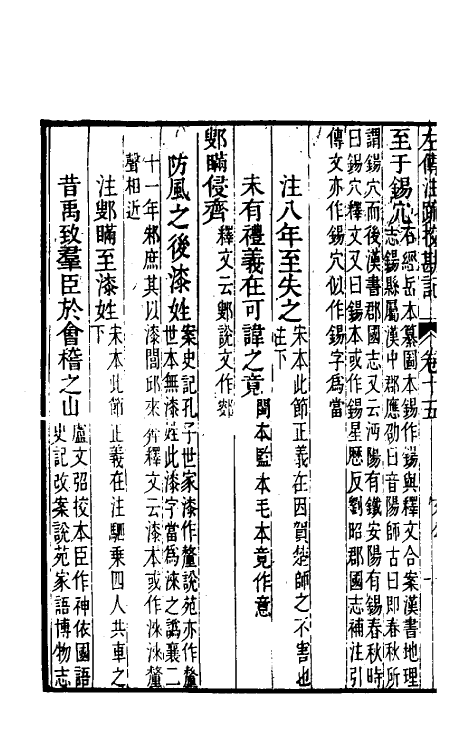 左傳注疏校勘記 卷十五
至于錫穴 石經岳本纂圖本錫作鍚與釋文合案漢書地理
志錫縣屬漢中郡應劭曰音陽師古曰即春秋所
謂錫穴而後漢書郡國志又云沔陽有鐵安陽有錫春秋時
曰錫穴釋文又曰錫本或作錫星歷反劉昭郡國志補注引
傳文亦作錫穴似作錫字為當
注八年至失之 宋本此節正義在因賀楚師之不害也
注下
未有禮義在可諱之竟 閩本監本毛本竟作意
鄋瞞侵齊 釋文云鄋說文作
防風之後漆姓 案史記孔子世家漆作釐說苑亦作釐
世本無漆姓此漆字當為淶之譌襄二
十一年邾庶其以漆閭邱來奔釋文云漆本或作淶淶釐
聲相近
注鄋瞞至漆姓 宋本此節正義在注駟乘四人共車之
下
昔禹致羣臣於會稽之山 盧文弨挍本臣作神依國語
史記改案說苑家語博物志